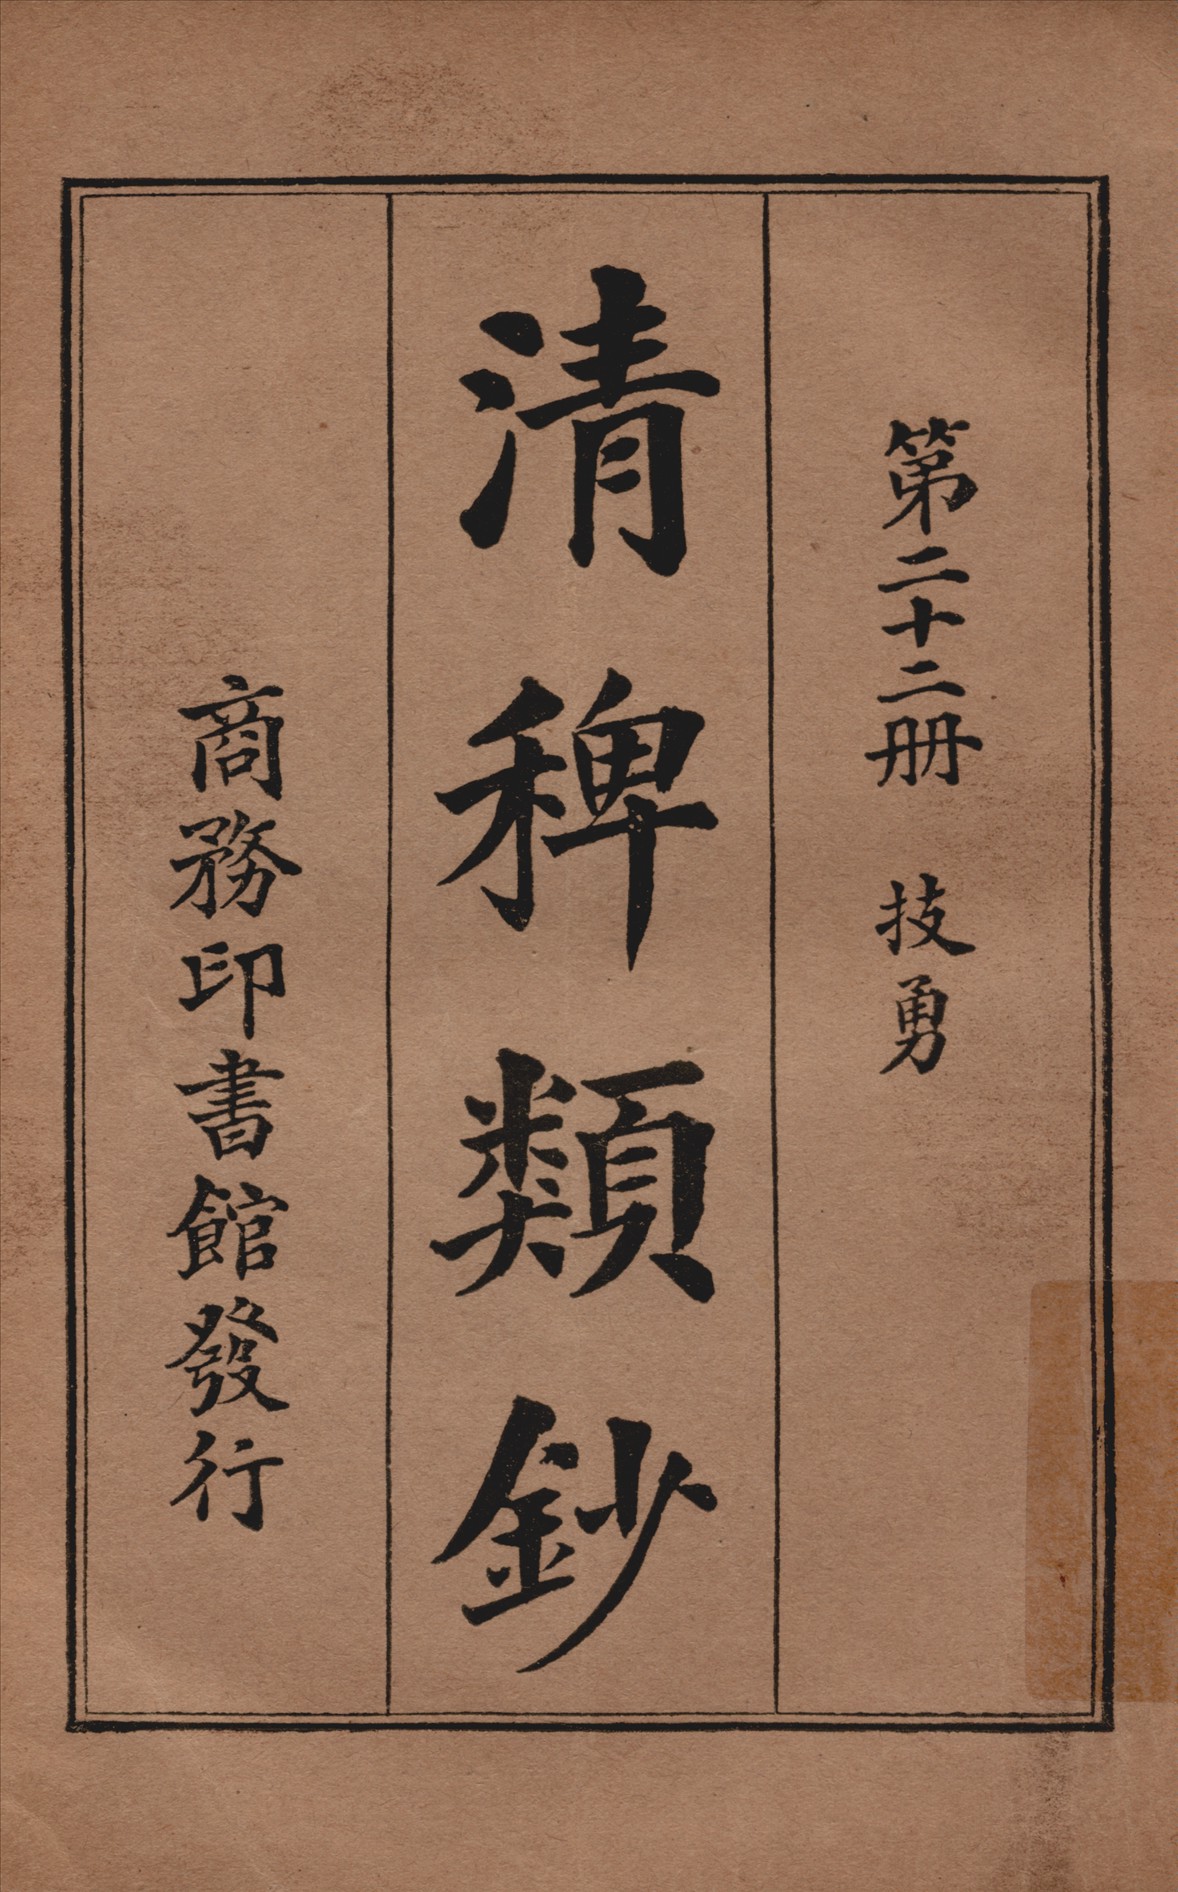 第二十二册　技勇
清稗類鈔
商務印書館發行